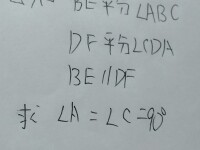 BE平分∠ABC
DF平分∠CDA
BE//DF
求∠A=∠C=90°